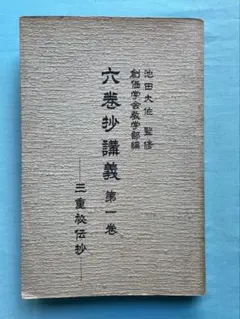 池田大作 監修
創価学会教学部編
六巻抄講義 第一巻
—三重秘伝抄—